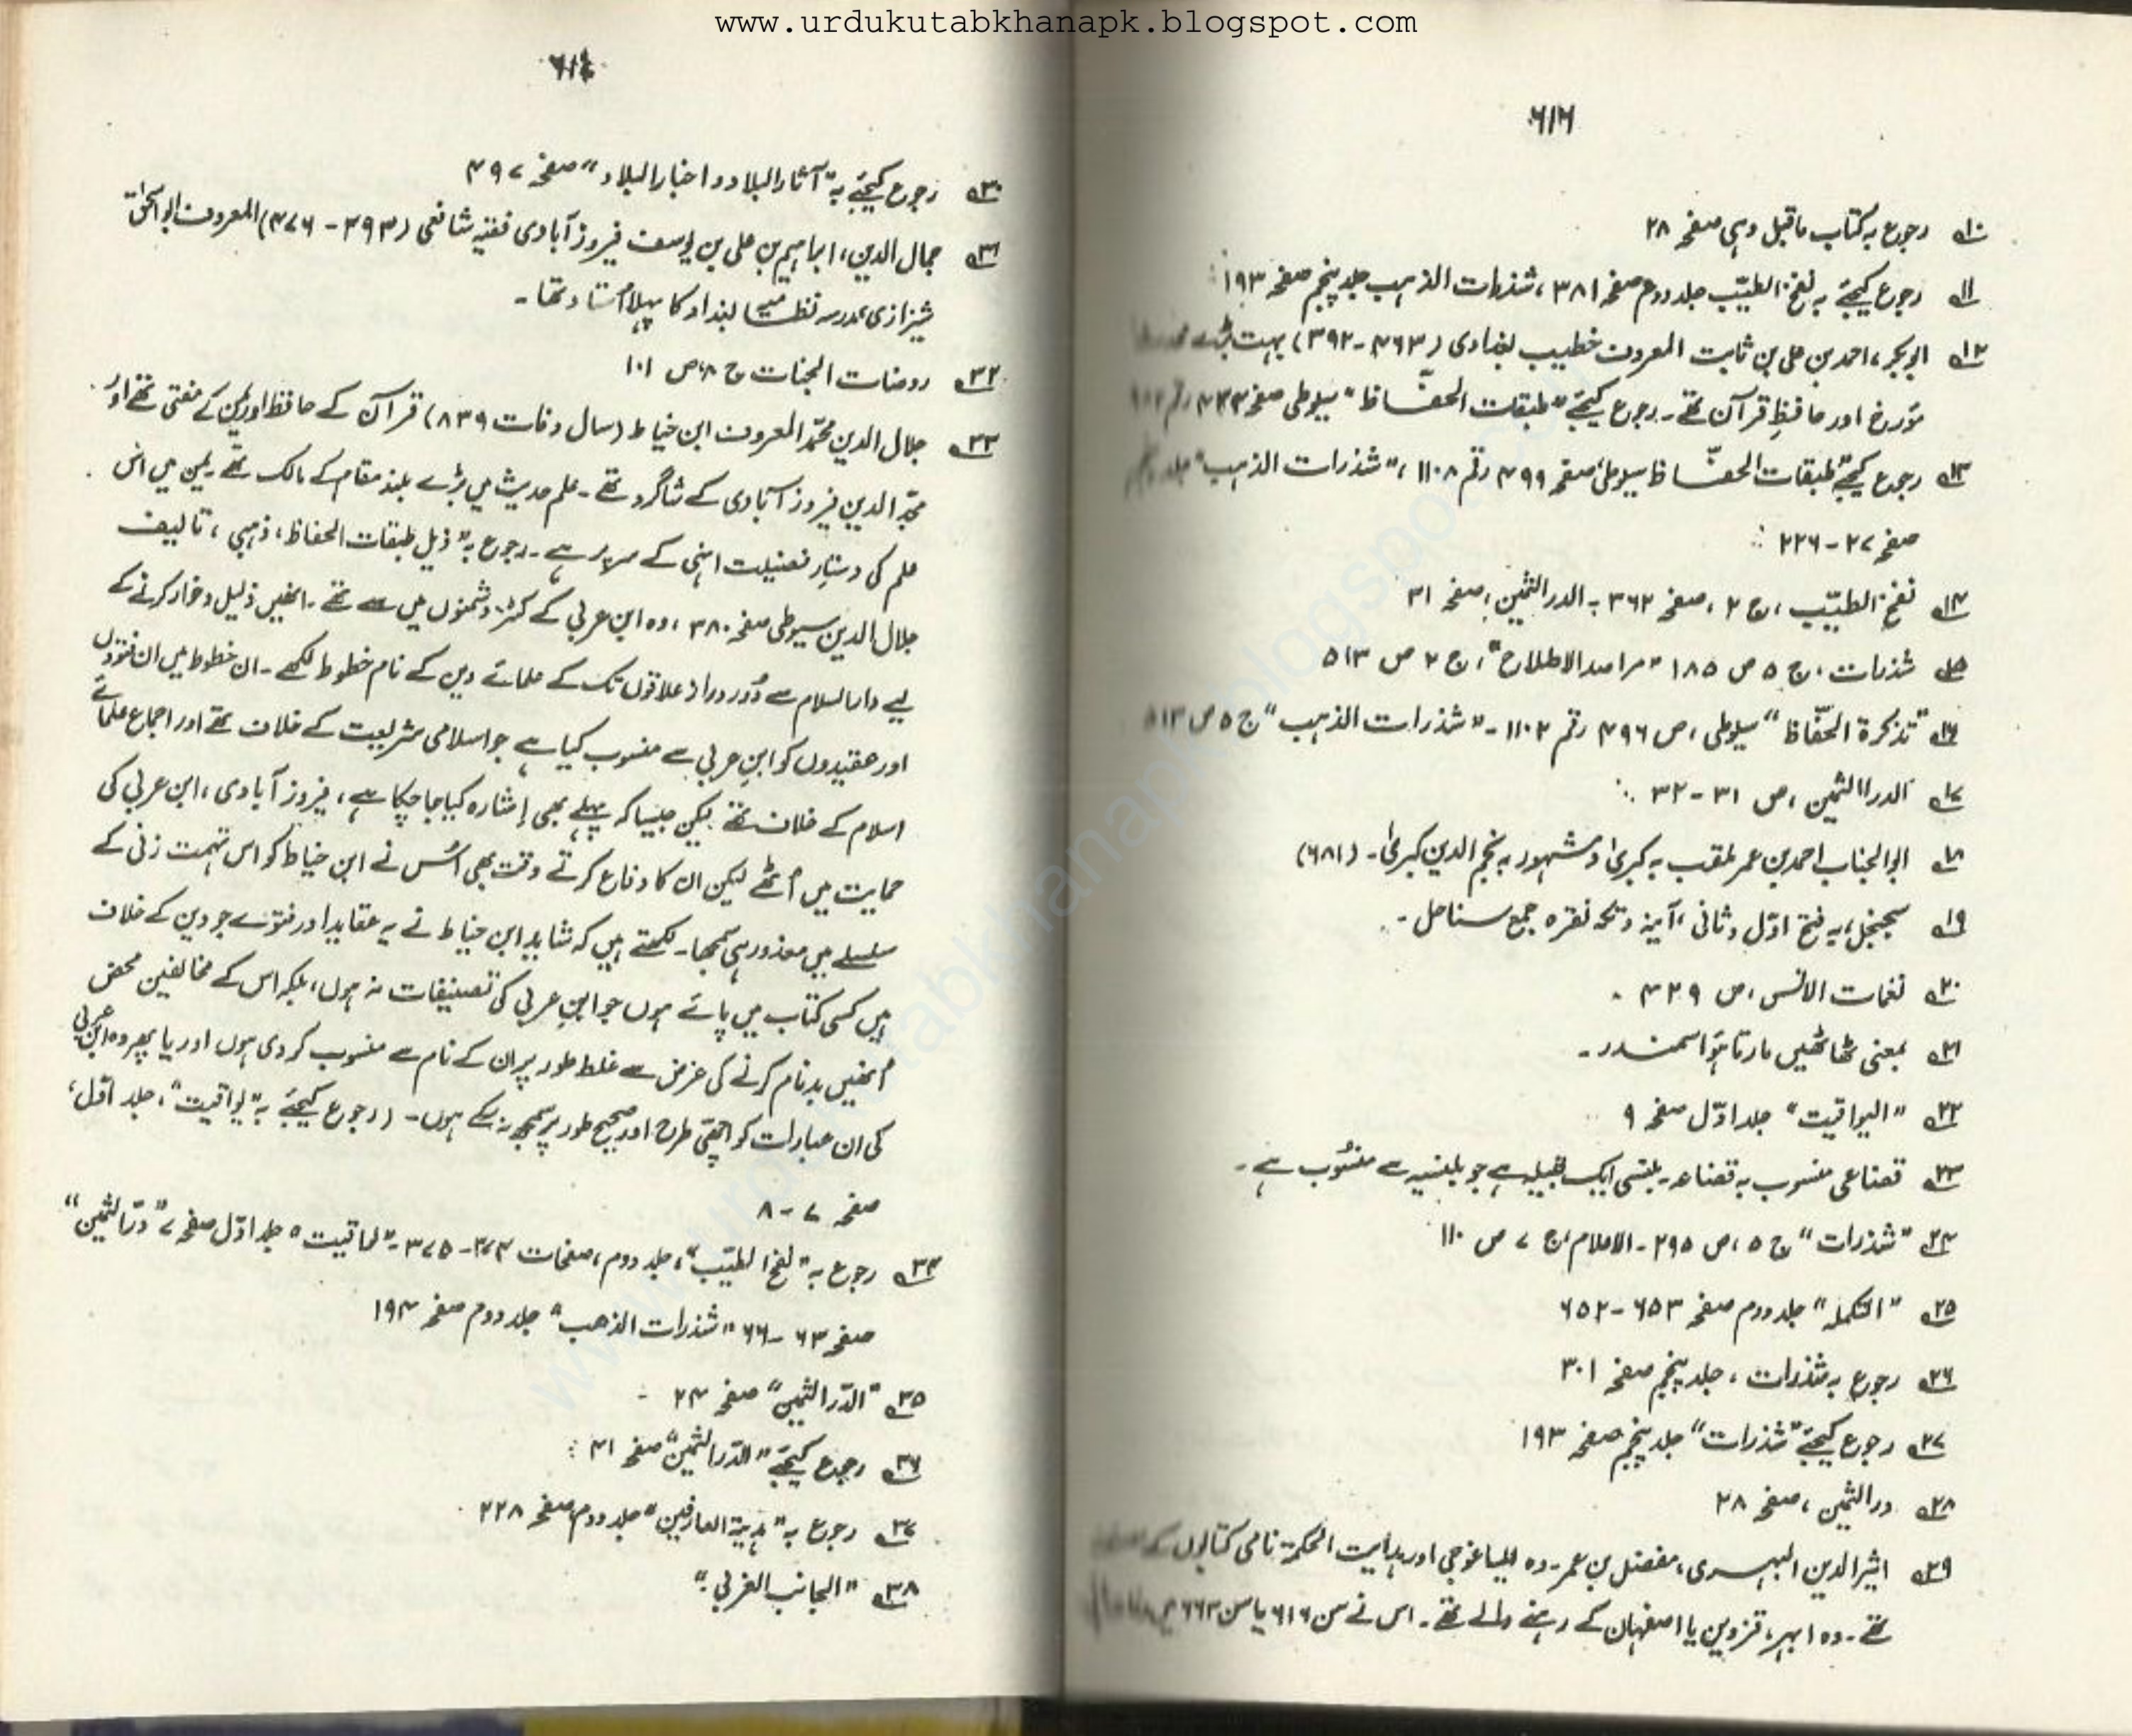 www.urdukutabkhanapk.blogspot.com
۶۱۶
۱۰؎ رجوع بہ کتاب ماقبل وہی صفحہ ۲۸
۱۱؎ رجوع کیجئے بہ نفخ الطیّب جلد دوم صفحہ ۳۸۱، شذرات الذہب جلد پنجم صفحہ ۱۹۳
۱۲؎ ابوبکر، احمد بن علی بن ثابت المعروف خطیب بغدادی (۴۶۳-۳۹۲) بہت بڑے
مؤرخ اور حافظِ قرآن تھے۔ رجوع کیجئے "طبقات الحفّاظ" سیوطی صفحہ ۴۳۳ رقم
۱۳؎ رجوع کیجئے "طبقات الحفّاظ سیوطی صفحہ ۴۹۹ رقم ۱۱۰۸، "شذرات الذہب" جلد
صفحہ ۲۷-۲۲۶
۱۴؎ نفخ الطیّب، ج ۲، صفحہ ۳۶۲۔ الدر الثمین، صفحہ ۳۱
۱۵؎ شذرات، ج ۵ ص ۱۸۵ "مراصد الاطلاع"، ج ۲ ص ۵۱۳
۱۶؎ "تذکرۃ الحفّاظ" سیوطی، ص ۴۹۶ رقم ۱۱۰۲۔ "شذرات الذہب" ج ۵ ص ۵۱۳
۱۷؎ الدراالثمین، ص ۳۱-۳۲
۱۸؎ ابوالجناب احمد بن عمر ملقب بہ کبریٰ و مشہور بہ نجم الدین کبریٰ۔ (۶۸۱)
۱۹؎ سجنجل، بہ فتح اوّل و ثانی، آینہ و تکہ نقرہ جمع سناحل۔
۲۰؎ نفحات الانس، ص ۴۲۹۔
۲۱؎ بمعنی ٹھاٹھیں مارتا ہوا سمندر۔
۲۲؎ "الیواقیت" جلد اوّل صفحہ ۹
۲۳؎ قضاعی منسوب بہ قضاعہ۔ بلنسی ایک قبیلہ ہے جو بلنسیہ سے منسُوب ہے۔
۲۴؎ "شذرات" ج ۵، ص ۲۹۵۔ الاعلام، ج ۷ ص ۱۱۰
۲۵؎ "التکملہ" جلد دوم صفحہ ۶۵۳-۶۵۲
۲۶؎ رجوع بہ شذرات، جلد پنجم صفحہ ۳۰۱
۲۷؎ رجوع کیجئے "شذرات" جلد پنجم صفحہ ۱۹۳
۲۸؎ در الثمین، صفحہ ۲۸
۲۹؎ اثیر الدین ابہری، مفضل بن عمر۔ وہ ایساغوجی اور ہدایت الحکمۃ نامی کتابوں کے
تھے۔ وہ ابہر، قزوین یا اصفہان کے رہنے والے تھے۔ اس نے سن ۶۱۶ یا سن ۶۶۳ میں
۶۱۷
۳۰؎ رجوع کیجئے بہ "آثار البلاد و اخبار البلاد" صفحہ ۴۹۷
۳۱؎ جمال الدین، ابراہیم بن علی بن یوسف فیروز آبادی فقیہ شافعی (۳۹۳-۴۷۶) المعروف ابو اسحٰق
شیرازی مدرسہ نظامیہ بغداد کا پہلا اُستاد تھا۔
۳۲؎ روضات الجنات ج ۸، ص ۱۰۱
۳۳؎ جلال الدین محمّد المعروف ابن خیاط (سال وفات ۸۳۹) قرآن کے حافظ اور یمن کے مفتی تھے اور
مجد الدین فیروز آبادی کے شاگرد تھے۔ علم حدیث میں بڑے بلند مقام کے مالک تھے۔ یمن میں اس
علم کی دستارِ فضیلت انہی کے سر پر ہے۔ رجوع بہ "ذیل طبقات الحفاظ، ذہبی، تالیف
جلال الدین سیوطی صفحہ ۳۸۰، وہ ابن عربی کے کٹر دشمنوں میں سے تھے۔ انھیں ذلیل و خوار کرنے کے
لیے دار السلام سے دُور دراز علاقوں تک کے علمائے دین کے نام خطوط لکھے۔ ان خطوط میں ان فتووں
اور عقیدوں کو ابنِ عربی سے منسوب کیا ہے جو اسلامی شریعت کے خلاف تھے اور اجماع علمائے
اسلام کے خلاف تھے۔ لیکن جیسا کہ پہلے بھی اشارہ کیا جا چکا ہے، فیروز آبادی، ابن عربی کی
حمایت میں اُٹھے لیکن ان کا دفاع کرتے وقت بھی اُس نے ابن خیاط کو اس تہمت زنی کے
سلسلے میں معذور ہی سمجھا۔ لکھتے ہیں کہ شاید ابن خیاط نے یہ عقاید اور فتوے جو دین کے خلاف
ہیں کسی کتاب میں پائے ہوں جو ابنِ عربی کی تصنیفات نہ ہوں، بلکہ اس کے مخالفین محض
اُنھیں بدنام کرنے کی غرض سے غلط طور پر ان کے نام سے منسوب کر دی ہوں اور یا پھر وہ ابن عربی
کی ان عبارات کو اچھی طرح اور صحیح طور پر سمجھ نہ سکے ہوں۔ (رجوع کیجئے بہ "یواقیت"، جلد اوّل،
صفحہ ۷-۸
۳۴؎ رجوع بہ "نفخ الطیّب"، جلد دوم، صفحات ۳۷۴-۳۷۵۔ جلد اوّل صفحہ ۷ "درّ الثمین"
صفحہ ۶۳-۶۶ "شذرات الذھب" جلد دوم صفحہ ۱۹۴
۳۵؎ "الدّر الثمین" صفحہ ۲۴
۳۶؎ رجوع کیجئے "الدّر الثمین" صفحہ ۴۱
۳۷؎ رجوع بہ "ہدیۃ العارفین" جلد دوم صفحہ ۲۲۸
۳۸؎ "الجانب الغربی"